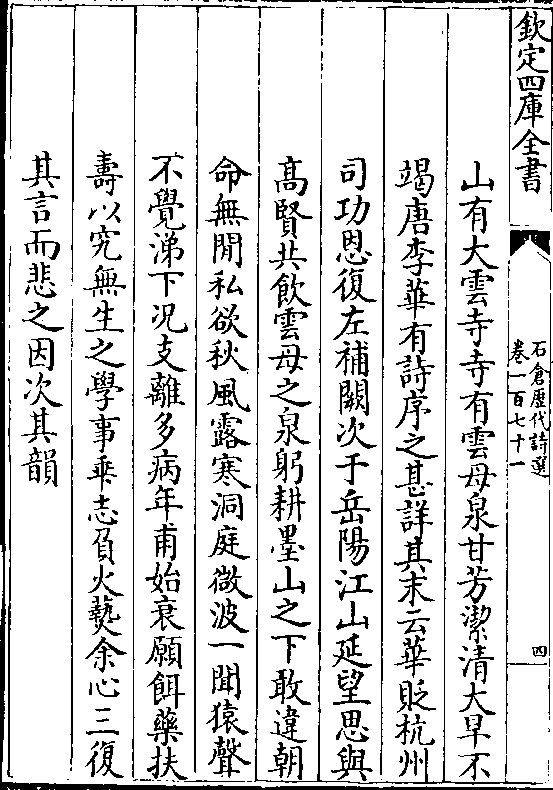 欽定四庫全書
石倉歷代詩選
卷一百七十一
四
山有大雲寺寺有雲母泉甘芳潔清大旱不
竭唐李華有詩序之甚詳其末云華貶杭州
司功恩復左補闕次于岳陽江山延望思與
髙賢共飲雲母之泉躬耕墨山之下敢違朝
命無閒私欲秋風露寒洞庭微波一聞猿聲
不覺涕下况支離多病年甫始衰願餌藥扶
壽以究無生之學事乖志負火爇余心三復
其言而悲之因次其韻